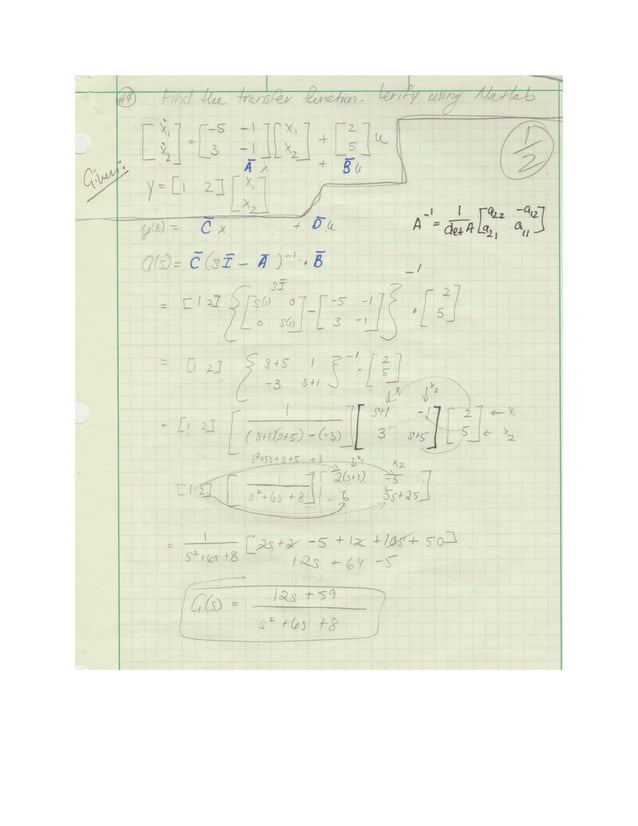 #9 Find the transfer function. Verify using Matlab
[ẋ₁ ẋ₂] = [-5 -1 3 -1] [x₁ x₂] + [2 5] u
Given:
Ā + B̄u
y = [1 2] [x₁ x₂]
1/2
y(t) = C̄ x + D̄ u
A⁻¹ = 1/det A [a₂₂ -a₁₂ a₂₁ a₁₁]
G(s) = C̄ (s Ī - Ā)⁻¹ · B̄
sĪ
= [1 2] { [s(1) 0 0 s(1)] - [-5 -1 3 -1] }⁻¹ · [2 5]
= [1 2] { s+5 1 -3 s+1 }⁻¹ · [2 5]
↓x₁ ↓x₂
= [1 2] [ 1/((s+1)(s+5) - (-3)) ] [ s+1 -1 3 s+5 ] [2 5] ← x₁ ← x₂
s²+5s+s+5 +3
↓x₁ x₂
[1 2] [ 1/(s²+6s+8) ] [ 2(s+1) -5 6 5s+25 ]
= 1/(s²+6s+8) [2s+2 -5 + 12 + 10s + 50]
12s + 64 -5
G(s) = (12s + 59)/(s² + 6s + 8)